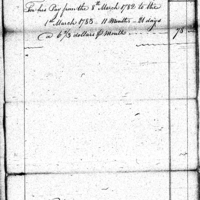 For his Pay from the 8th March 1782 to the
1st March 1783 - 11 Months - 21 days
@ 6 2/3 dollars pr Month - - - 78